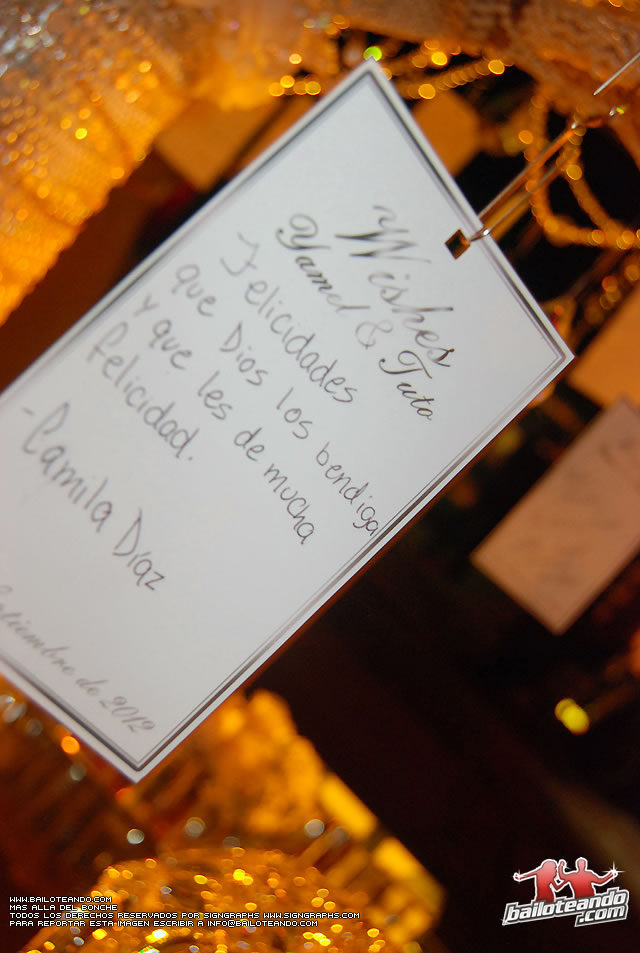 Wishes
Yamel & Tuto
Felicidades
que Dios los bendiga
y que les de mucha
felicidad.
-Camila Díaz
de 2012
WWW.BAILOTEANDO.COM
MAS ALLA DEL BONCHE
TODOS LOS DERECHOS RESERVADOS POR SIGNGRAPHS WWW.SIGNGRAPHS.COM
PARA REPORTAR ESTA IMAGEN ESCRIBIR A INFO@BAILOTEANDO.COM
bailoteando
.com